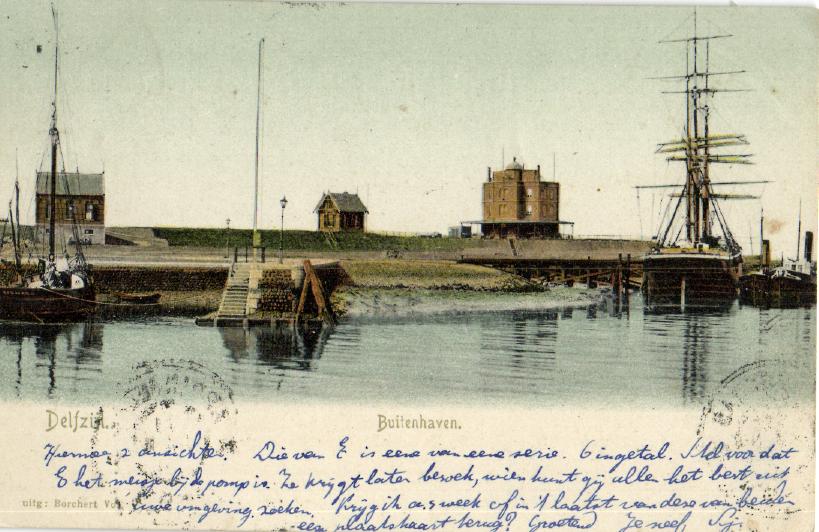 Delfzijl.
Buitenhaven.
Hiermee 2 ansichte. Die van E is eene van eene serie. 6 in getal. voor dat
E het meisje bij de pomp is. Ze krijgt later bezoek, wien kunt gij allen het best uit
uitg: Borchert
uwe omgeving zoeken. Krijg ik a.s. week of in 't laatst van deze van beiden
een plaatskaart terug? Groetend je neef